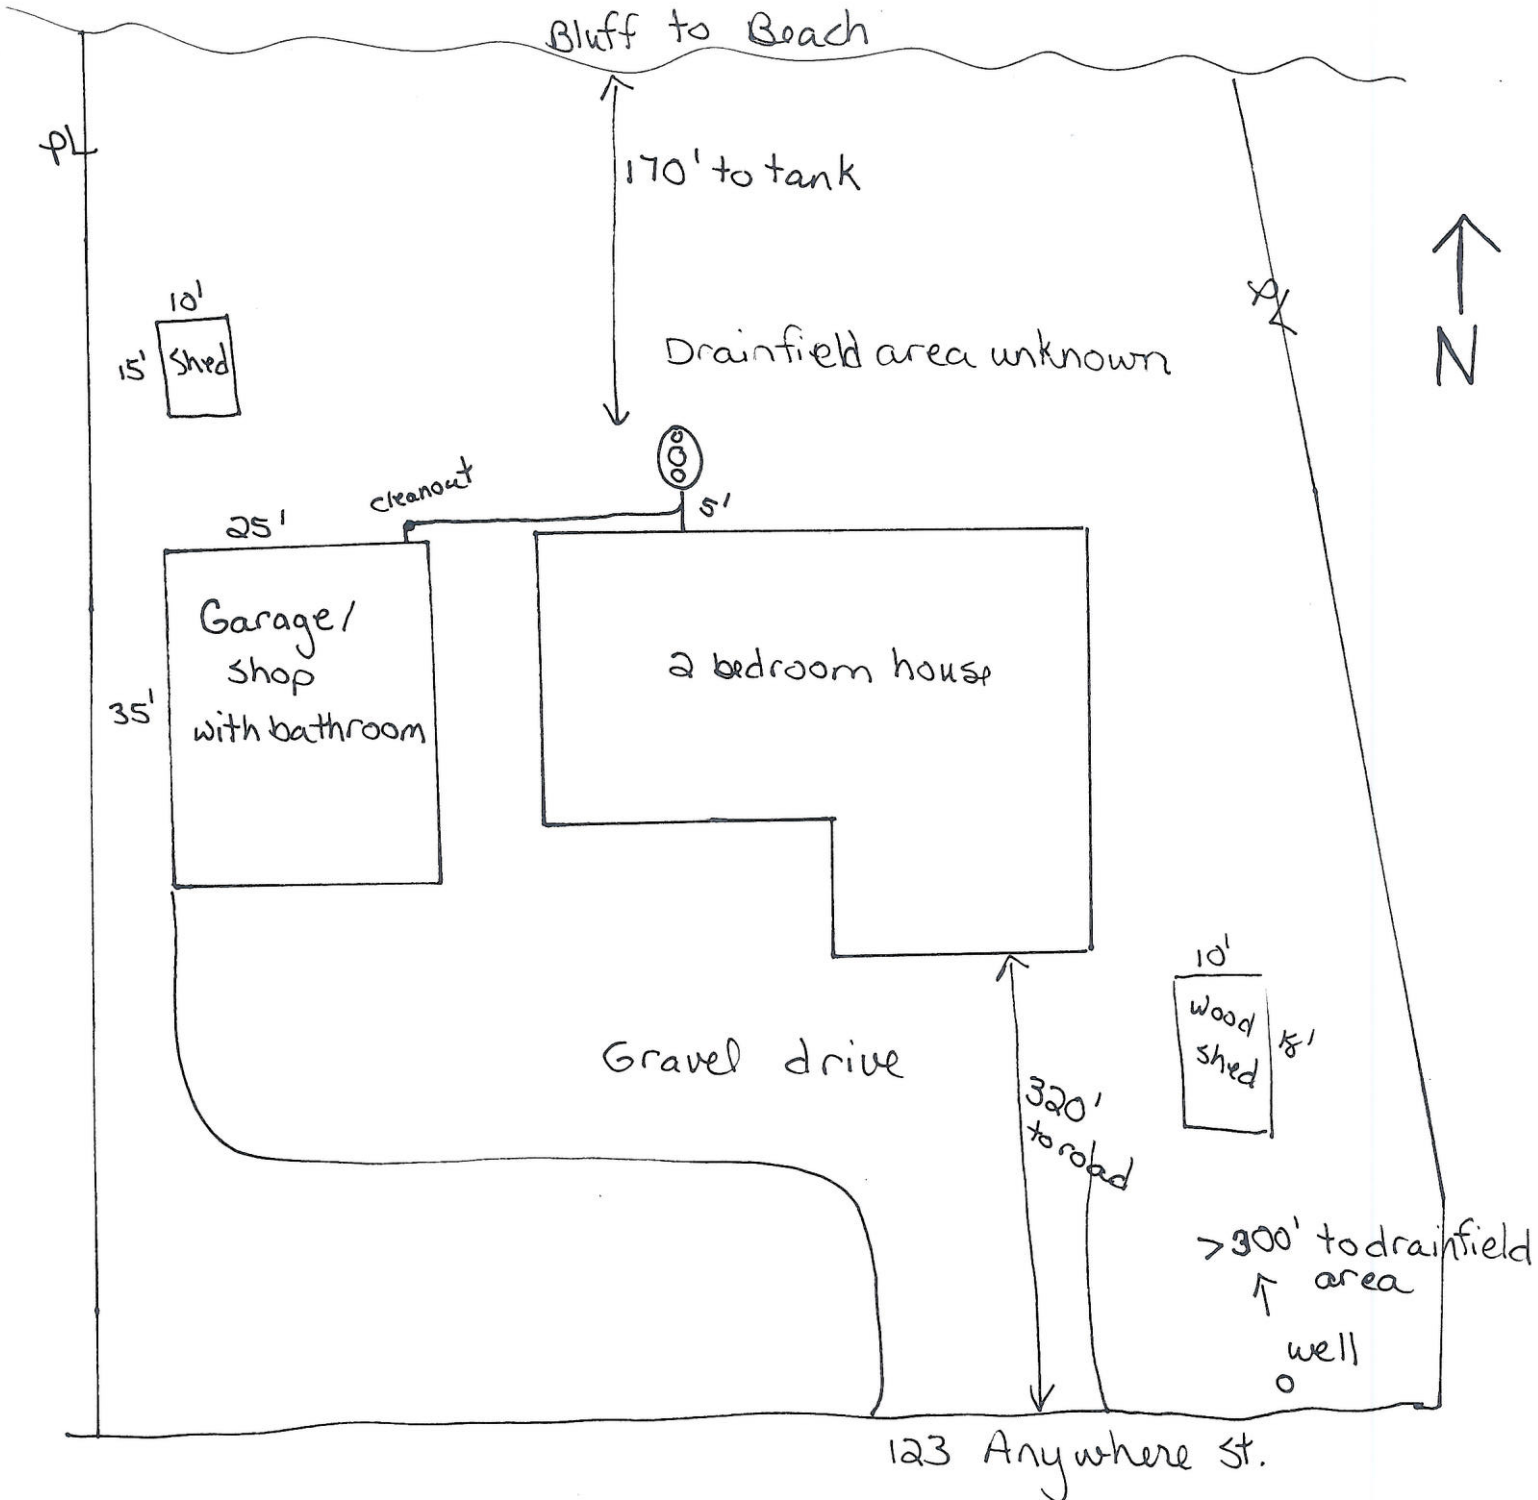 Bluff to Beach
PL
170' to tank
PL
N
10'
15'
Shed
Drainfield area unknown
cleanout
5'
25'
35'
Garage/
Shop
with bathroom
2 bedroom house
10'
Wood
Shed
Gravel drive
320'
to road
>300' to drainfield
area
well
123 Anywhere St.